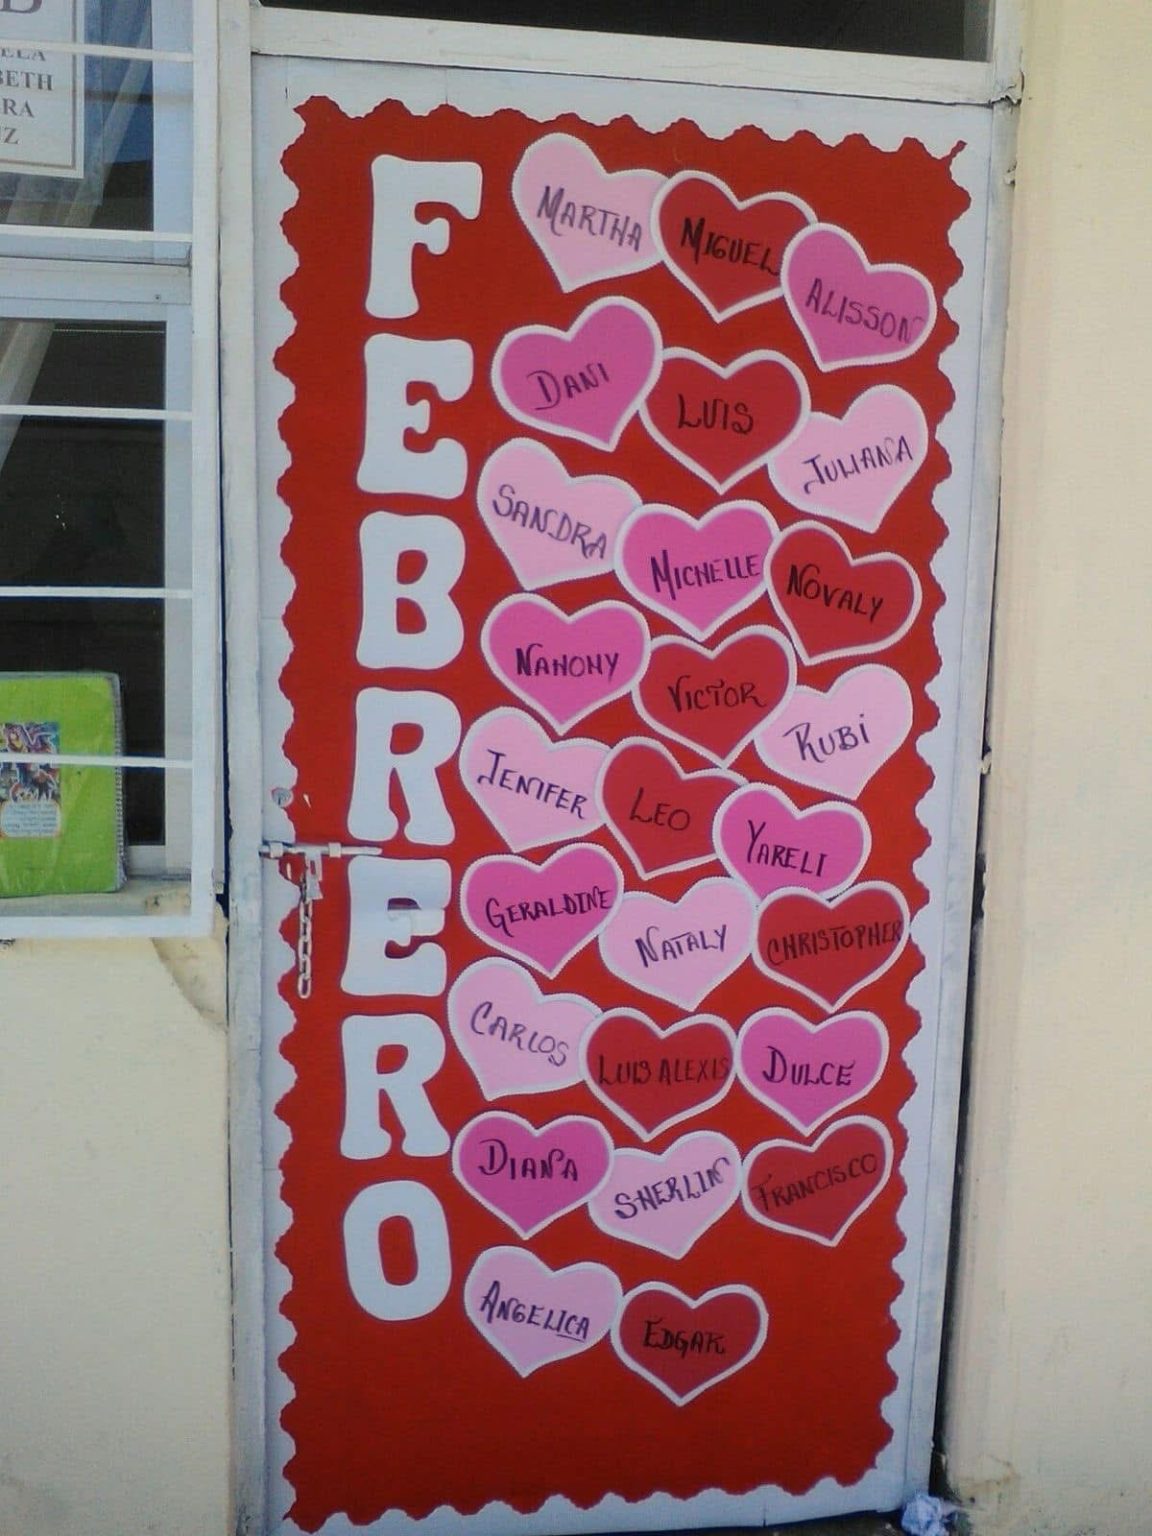 ELA
BETH
RA
UZ
FEBRERO
MARTHA
MIGUEL
ALISSON
DANI
LUIS
JULIANA
SANDRA
MICHELLE
NOVALY
NAHOMY
VICTOR
RUBI
JENIFER
LEO
YARELI
GERALDINE
NATALY
CHRISTOPHER
CARLOS
LUIS ALEXIS
DULCE
DIANA
SHERLIN
FRANCISCO
ANGELICA
EDGAR